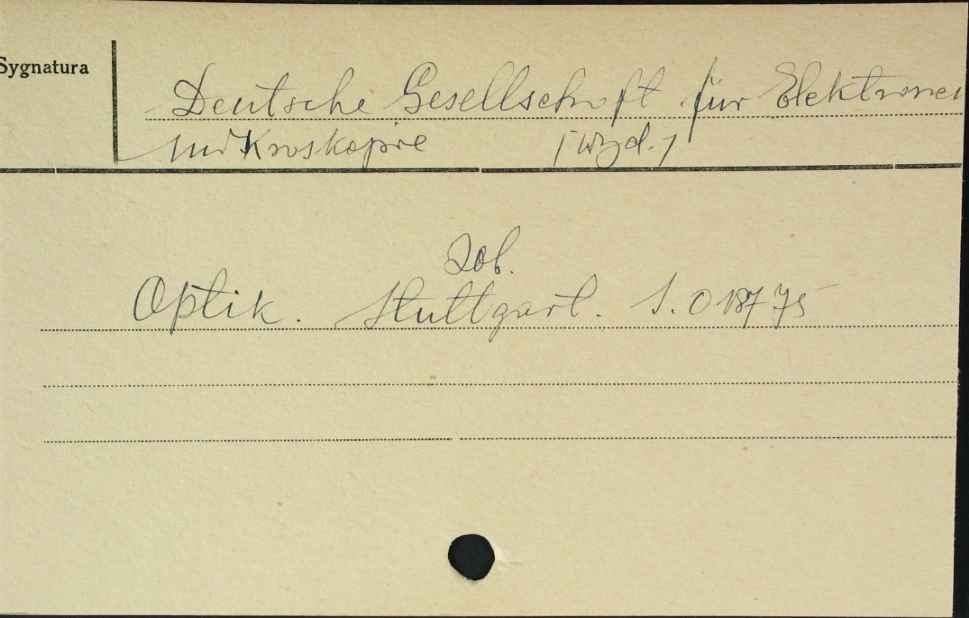 Sygnatura
Deutsche Gesellschaft für Elektronen
mikroskopie [Wyd.]
Zob.
Optik. Stuttgart. S. 018775